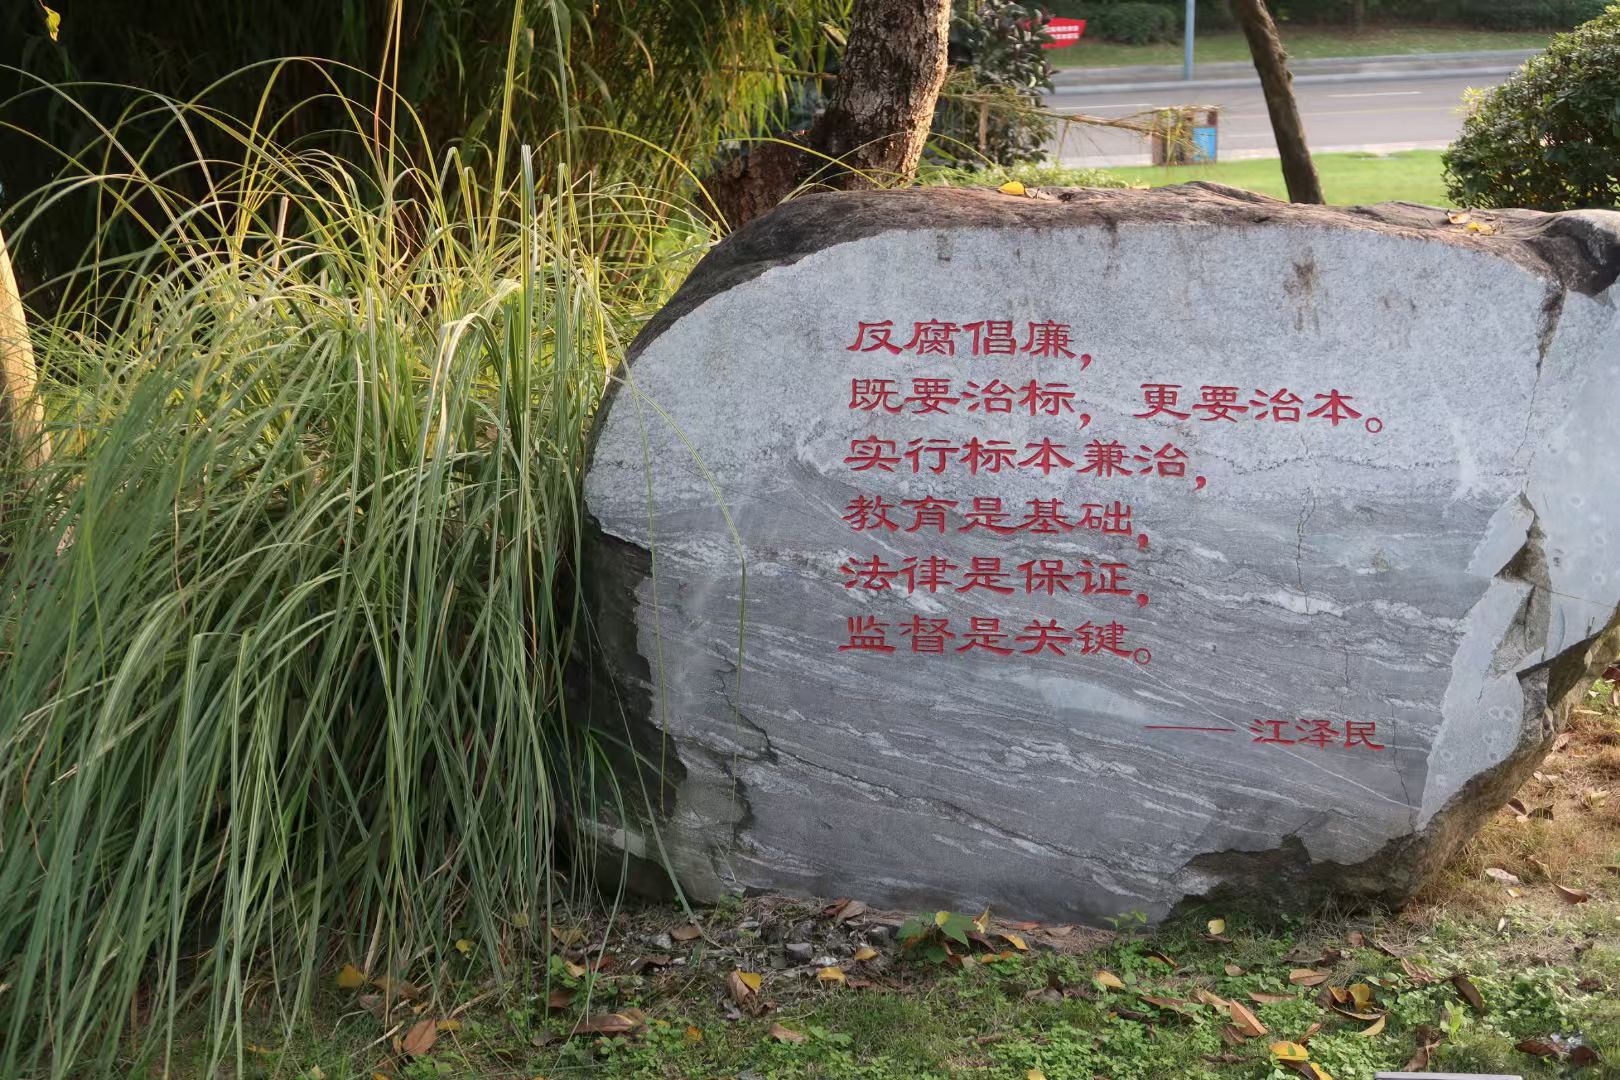 反腐倡廉，
既要治标，更要治本。
实行标本兼治，
教育是基础，
法律是保证，
监督是关键。
——江泽民